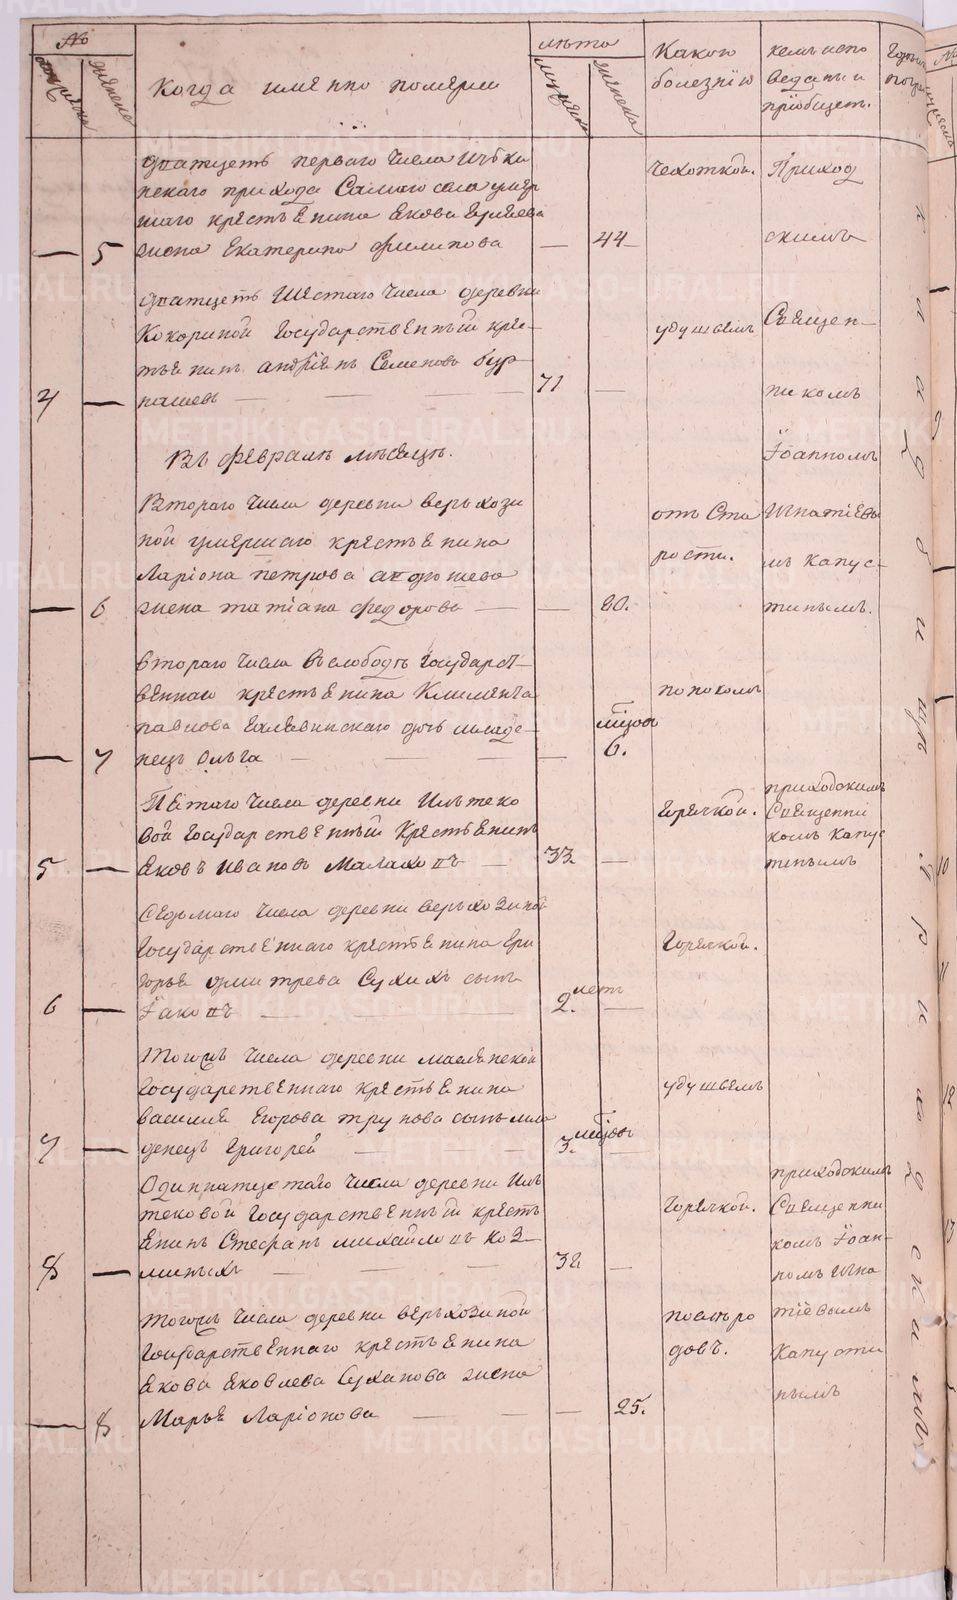 №
мужеска
женска
Когда именно померли
лѣта
мужеска
женска
Какою
болезнїю
кемъ испо
ведан и и
прїобщет.
дватцеть перваго числа
скаго прихода Самаго села умер
шаго крестьенина Екова
— 5 жена Екатерина Филипова — 44
Чехоткой.
Приход
скимъ
дватцеть шестаго числа деревни
Кокориной государственный крес-
тьенинъ андрїенъ Семеновъ бур
4 — нашевъ — 71 —
удушьемъ
Священ-
никомъ
Їоанномъ
Въ февралѣ месецѣ.
Втораго числа деревни верьхози
ной умершаго крестьенина
Ларїона петрова
— 6 жена татїана федорова — 80.
отъ Ста
рости.
Игнатїевы
мъ Капус-
тинымъ.
втораго числа въ слободѣ государст-
веннаго крестьенина Климента
павлова дочь младе-
— 7 нецъ Ольга — мѣсецовъ 6.
поносомъ
Петаго числа деревни Ильтеко
вой государственный крестьенинъ
5 — Ековъ Ивановъ Малаховъ — 33 —
горечкой.
приходскимъ
Священни
комъ Капус
тинымъ
Седьмаго числа деревни верьхозиной
государственнаго крестьенина Гри
горье дмитрева Сухихъ сынъ
6 — Їаковъ — 2. летъ —
горечкой.
тогожъ числа деревни масленской
государственнаго крестьенина
василье Егорова трунова сынъ мла
7 — денецъ Григорей — 3. мѣсецовъ —
удушьемъ
Одиннатцетаго числа деревни Иль
тековой государственный кресть
енинъ Стефанъ михайловъ коз-
8 — миныхъ — 32 —
горечкой.
приходскимъ
Священни
комъ Їоан-
номъ Игна
тїевымъ
Капусти
нымъ
тогожъ числа деревни верьхозиной
государственнаго крестьенина
Екова Ековлева Суханова жена
— 8 Марье Ларїонова — 25.
после ро
довъ.
METRIKI.GASO-URAL.RU